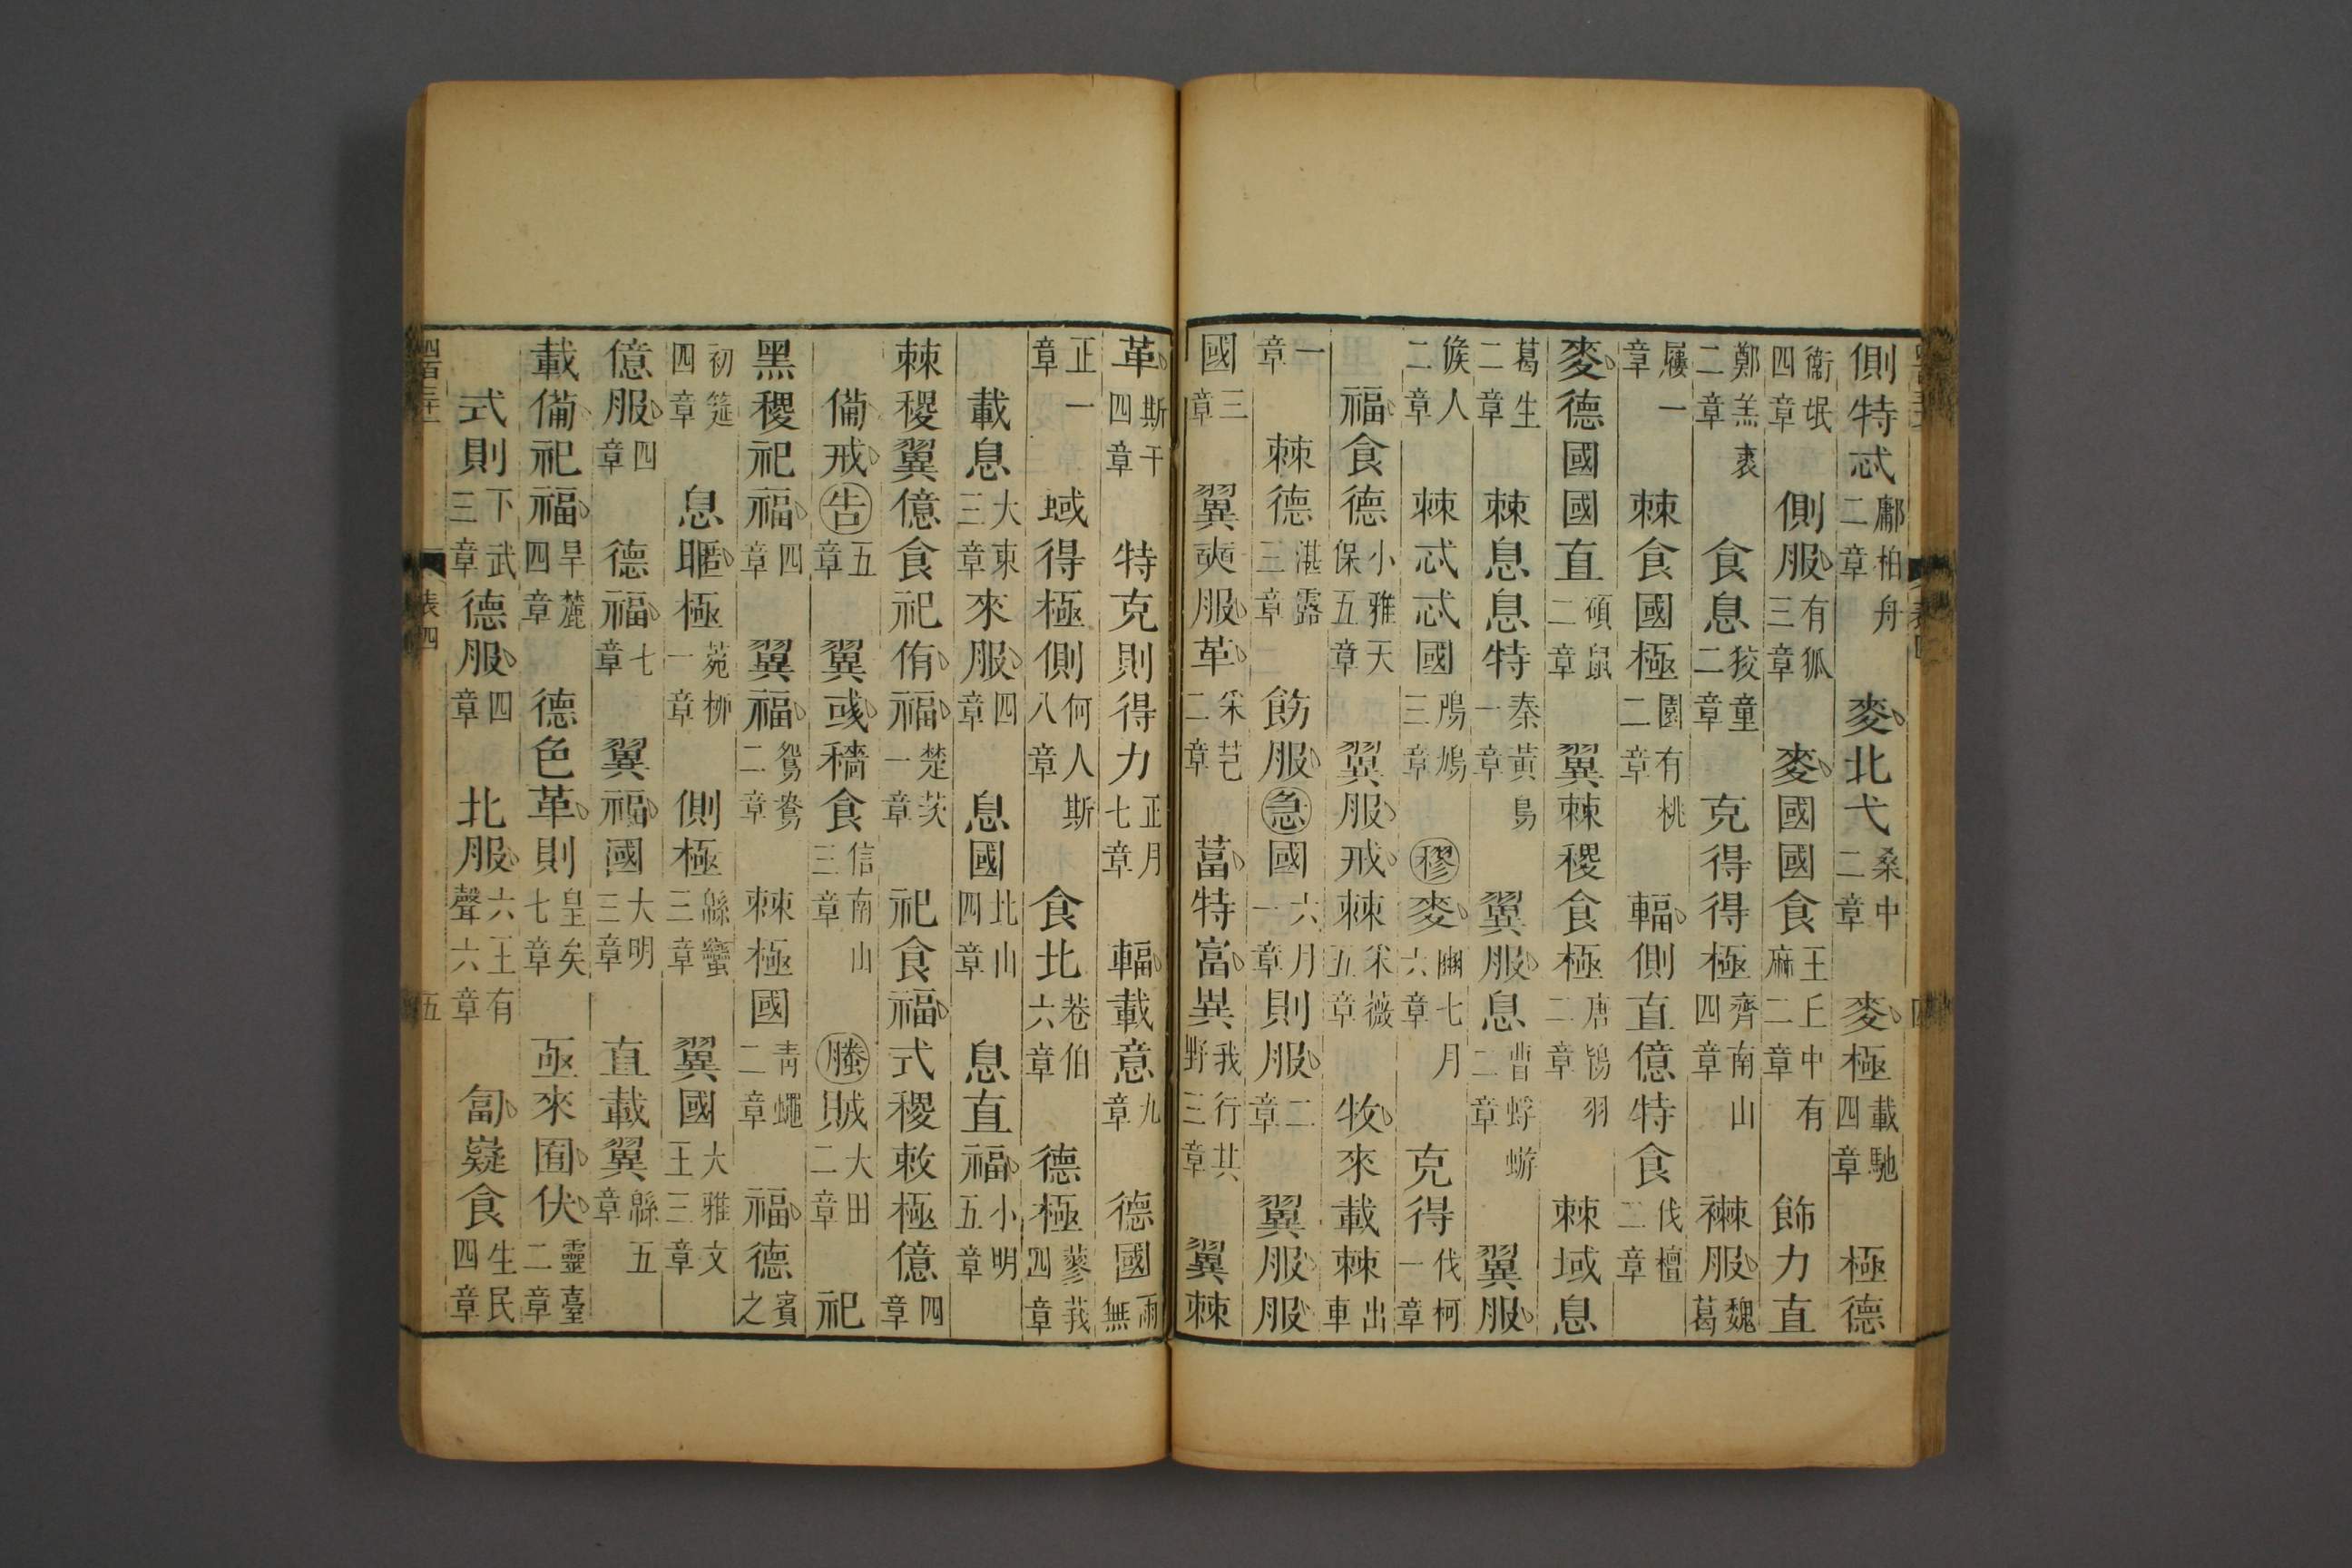 側特忒鄘柏舟二章 麥北弋桑中二章 麥極載馳四章 極德
衞氓四章 側服有狐三章 麥國國食王丘中有麻二章 飾力直
鄭羔裘二章 食息狡童二章 克得得極齊南山四章 襋服魏葛
屨一章 棘食國極園有桃二章 輻側直億特食伐檀二章
麥德國國直碩鼠二章 翼棘稷食極唐鴇羽二章 棘域息
葛生二章 棘息息特秦黃鳥一章 翼服息曹蜉蝣二章 翼服
候人二章 棘忒忒國鳲鳩三章 穋麥豳七月六章 克得伐柯一章
福食德小雅天保五章 翼服戒棘采薇五章 牧來載棘出車
一章 棘德湛露三章 飭服急國六月一章 則服二章 翼服服
國三章 翼奭服革采芑二章 葍特富異我行其野三章 翼棘
革斯干四章 特克則得力正月七章 輻載意九章 德國雨無
正一章 蜮得極側何人斯八章 食北巷伯六章 德極蓼莪四章
載息大東三章 來服四章 息國北山四章 息直福小明五章
棘稷翼億食祀侑福楚茨一章 祀食福式稷敕極億四章
備戒告五章 翼彧穡食信南山三章 螣賊大田二章 祀
黑稷祀福四章 翼福鴛鴦二章 棘極國青蠅二章 福德賓之
初筵四章 息暱極菀柳一章 側極緜蠻三章 翼國大雅文王三章
億服四章 德福七章 翼福國大明三章 直載翼緜五章
載備祀福旱麓四章 德色革則皇矣七章 亟來囿伏靈臺二章
式則下武三章 德服四章 北服文王有聲六章 匐嶷食生民四章
表四
五